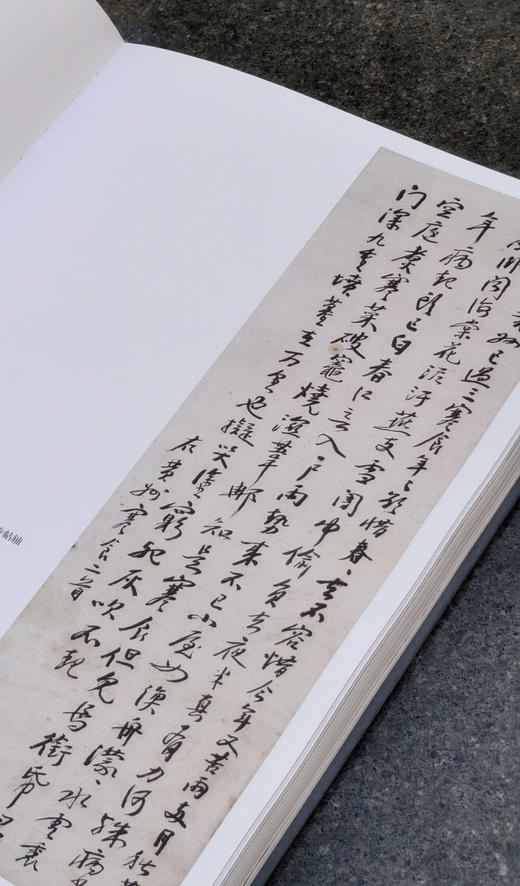 州已過三寒食年々欲惜春々去不容惜今年又苦雨兩月秋蕭
聞海棠花泥汙燕支雪闇中偷負去夜半真有力何殊病
年病起頭已白春江欲入戶雨勢來不已小屋如漁舟濛々水雲裏
空庖煮寒菜破竈燒濕葦那知是寒食但見烏銜帋君
門深九重墳墓在万里也擬哭塗窮死灰吹不起
右黃州寒食二首
帖轴